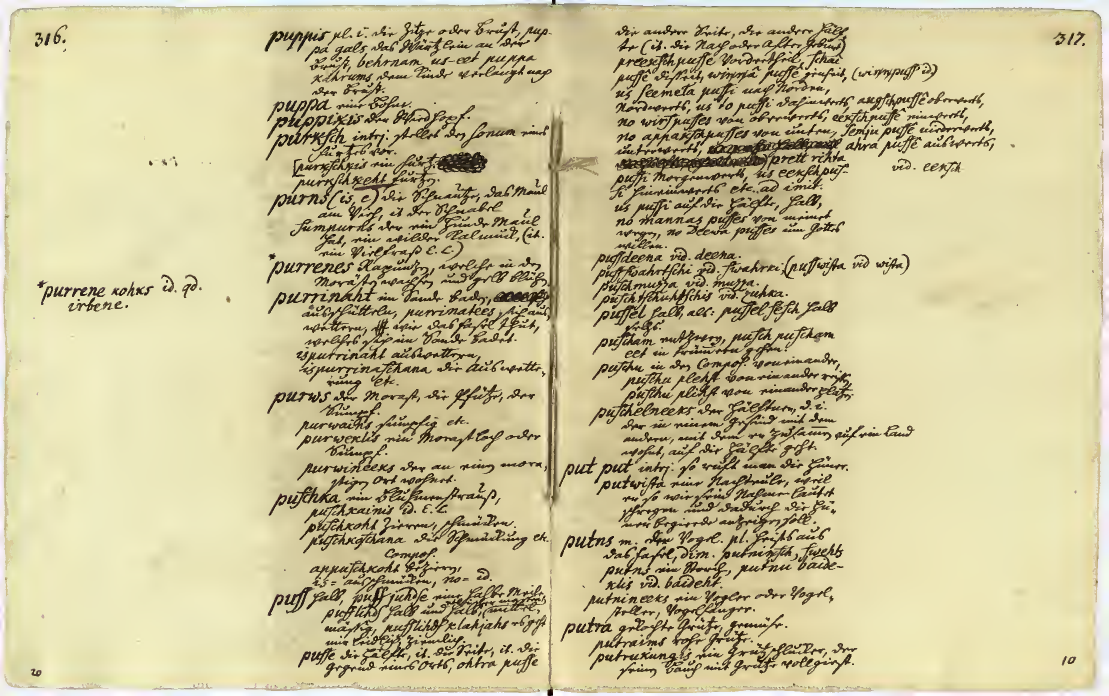 316.
puppis pl. i. die Zitze oder Brust, pup-
pa gals das Wärtzlein an der
Brust, behrnam us-eet puppa
kahrums dem Kinde verlangt nach
der Brust.
puppa eine Bohne.
puppikis der Wiedhopf.
purksch interj. stellet den sonum eines
furtzes vor.
purkschkis ein furtz
purkschkeht furtzen.
purns (is, e) die Schnautze, das Maul
am Vieh, it. der Schnabel
Sumpurns der ein Hunde Maul
hat, ein wilder Kalmuck, (it.
ein Vielfraß E. L.)
*purrenes Rapuntzen, welche in den
Morasten wachsen und gelb blühen.
*purrene kohks id. qd.
irbene.
purrinaht im Sande baden,
ausschütteln, purrinatees sich aus
wettern, wie das Hasel Huhn,
welches sich im Sande badet.
ispurrinaht auswettern,
ispurrinaschana die Auswette-
rung etc.
purws der Morast, die Pfütze, der
Sumpf.
purwains sumpfig etc.
purweklis ein Morastloch oder
Sumpf.
purwineeks der an einem mora-
stigen Ort wohnet.
puschka ein Bluhmenstrauß,
puschkainis id. E. L.
puschkoht zieren, schmücken.
puschkoschana die Schmückung etc.
Compos.
appuschkoht bezieren,
is= ausschmücken, no= id.
puss halb, puss juhdse eine halbe Meile.
pusslihds halb und halb, mittel-
mäßig, pusslihds klahjahs es geht
mir leidlich ziemlich.
pusse die Hälfte, it. die Seite, it. die
gegend eines Orts, ohtra pusse
20
317.
die andere Seite, die andere Hälf-
te (is. die Nach oder After Geburt)
preekschpusse Vordertheil, schai
pussê disseit, winnjâ pussê jenseit, (winnpuss id)
us seemela pussi nach Norden,
Nordwerts, us to pussi dahinwerts, augschpussê oberwerts,
no wirspusses von oberwerts, eekschpussê innwerts,
no appakschpusses von unten, semju pussê niederwerts,
unterwerts, ahra pussê auswerts,
prett rihta
pussi Morgenwerts, us eekschpus-
si hineinwerts etc. ad imit.
vid. eeksch.
us pussi auf die Hälfte, halb,
no mannas pusses von meinet
wegen, no Deewa pusses um Gottes
willen.
pussdeena vid. deena.
pusskwahrtschi vid. kwahrki (pusswista vid wista)
puschmuzza vid. muzza.
puschtschuhkschis vid. zuhka.
pussel halb, als: pussel sesch halb
sechs.
puscham entzwey, pusch puscham
eet in trümmern gehen.
puschu in den Compos. von einander,
puschu plehst von einander reißen,
puschu plihst von einander platzen.
puschelneeks der Hälftner, d. i.
der in einem Gesind mit dem
andern, mit dem er zusamm auf ein Land
wohnt, auf die Hälfte geht.
put put interj. so ruft man die Hüner.
putwista eine Nachteule, weil
er so wie sein Nahme lautet
schreyen und dadurch die Hü-
ner begierde anzeigen soll.
putns m. der Vogel. pl. heißts auch
das Hasel, dim. putninsch, swehts
putns ein Storch, putnu baide-
klis vid. baideht.
putnineeks ein Vogler oder Vogel-
steller, Vogelfänger.
putra gekochte Grütze, gemüse.
putraims rohe Grütze.
putrukungis ein Grützschlucker, der
seinen Bauch mit Grütze vollgießt.
10